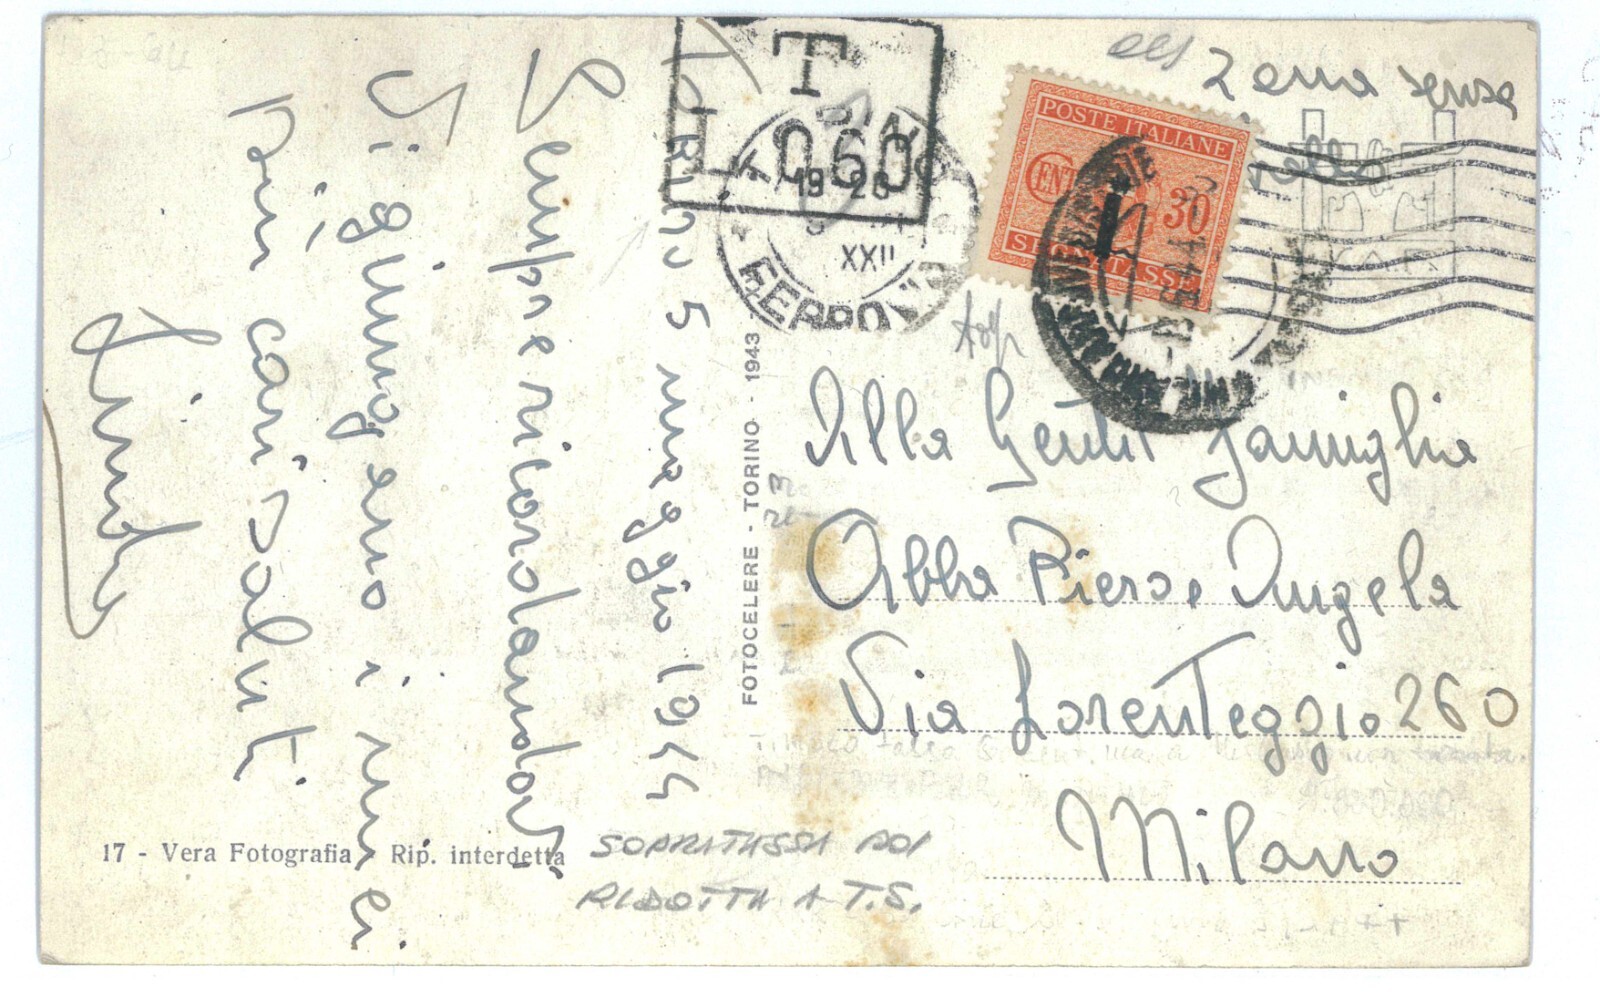 Torino 5 maggio 1944
Sempre ricordandovi
Vi giungano i miei
Più cari saluti
T
L 0.60
TORINO
19-20
5
XXII
FERROVIA
POSTE ITALIANE
CENT. 30
SEGNATASSE
senza
Alla Gentil Famiglia
Abba Pierse Angela
Via Lorenteggio 260
Milano
FOTOCELERE - TORINO - 1943
17 - Vera Fotografia - Rip. interdetta
SOPRATASSA POI
RIDOTTA A T.S.